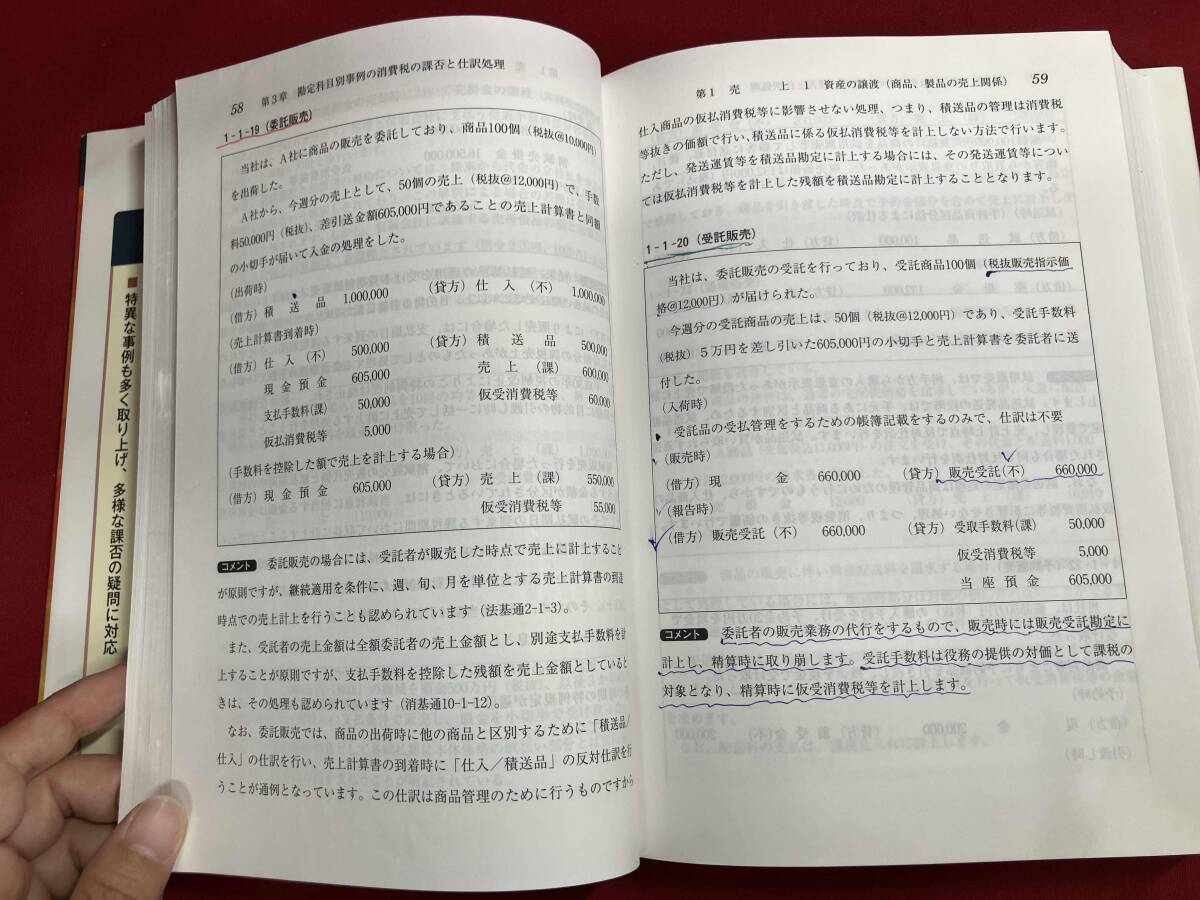 58 第3章 勘定科目別事例の消費税の課否と仕訳処理
1-1-19（委託販売）
当社は、A社に商品の販売を委託しており、商品100個（税抜@10,000円）
を出荷した。
A社から、今週分の売上として、50個の売上（税抜@12,000円）で、手数
料50,000円（税抜）、差引送金額605,000円であることの売上計算書と同額
の小切手が届いて入金の処理をした。
（出荷時）
（借方）積送品 1,000,000 （貸方）仕入（不） 1,000,000
（売上計算書到着時）
（借方）仕入（不） 500,000 （貸方）積送品 500,000
現金預金 605,000 売上（課） 600,000
支払手数料（課） 50,000 仮受消費税等 60,000
仮払消費税等 5,000
（手数料を控除した額で売上を計上する場合）
（借方）現金預金 605,000 （貸方）売上（課） 550,000
仮受消費税等 55,000
コメント 委託販売の場合には、受託者が販売した時点で売上に計上すること
が原則ですが、継続適用を条件に、週、旬、月を単位とする売上計算書の到達
時点での売上計上を行うことも認められています（法基通2-1-3）。
また、受託者の売上金額は全額委託者の売上金額とし、別途支払手数料を計
上することが原則ですが、支払手数料を控除した残額を売上金額としていると
きは、その処理も認められています（消基通10-1-12）。
なお、委託販売では、商品の出荷時に他の商品と区別するために「積送品/
仕入」の仕訳を行い、売上計算書の到着時に「仕入/積送品」の反対仕訳を行
うことが通例となっています。この仕訳は商品管理のために行うものですから
第1 売 上 1 資産の譲渡（商品、製品の売上関係） 59
仕入商品の仮払消費税等に影響させない処理、つまり、積送品の管理は消費税
等抜きの価額で行い、積送品に係る仮払消費税等を計上しない方法で行います。
ただし、発送運賃等を積送品勘定に計上する場合には、その発送運賃等につい
ては仮払消費税等を計上した残額を積送品勘定に計上することとなります。
1-1-20（受託販売）
当社は、委託販売の受託を行っており、受託商品100個（税抜販売指示価
格@12,000円）が届けられた。
今週分の受託商品の売上は、50個（税抜@12,000円）であり、受託手数料
（税抜）5万円を差し引いた605,000円の小切手と売上計算書を委託者に送
付した。
（入荷時）
受託品の受払管理をするための帳簿記載をするのみで、仕訳は不要
（販売時）
（借方）現金 660,000 （貸方）販売受託（不） 660,000
（報告時）
（借方）販売受託（不） 660,000 （貸方）受取手数料（課） 50,000
仮受消費税等 5,000
当座預金 605,000
コメント 委託者の販売業務の代行をするもので、販売時には販売受託勘定に
計上し、精算時に取り崩します。受託手数料は役務の提供の対価として課税の
対象となり、精算時に仮受消費税等を計上します。
■特異な事例も多く取り上げ、多様な課否の疑問に対応